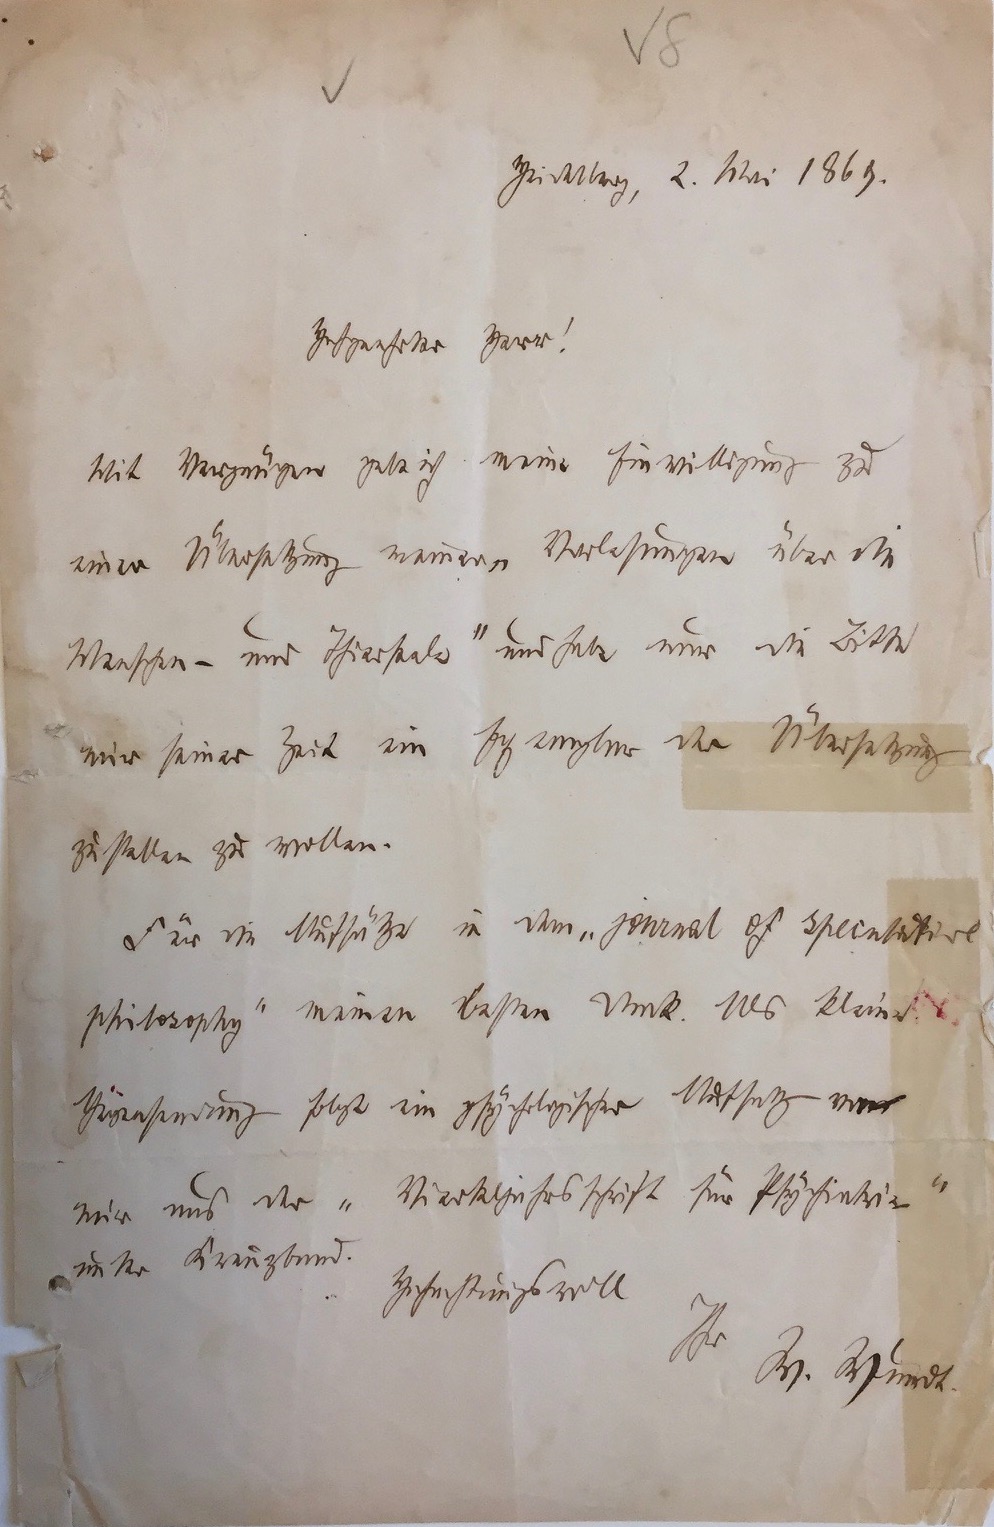 √ 8
√
Heidelberg, 2. Mai 1869.
Hochgeehrter Herr!
Mit Vergnügen gebe ich meine Einwilligung zu
einer Übersetzung meiner „Vorlesungen über die
Menschen- und Thierseele" und habe nur die Bitte
mir seiner Zeit ein Exemplar der Übersetzung
zustellen zu wollen.
Für die Aufsätze in dem „journal of speculative
philosophy" meinen besten Dank. Als kleine
Gegensendung folgt ein psychologischer Aufsatz von
mir aus der „Vierteljahrsschrift für Psychiatrie"
unter Kreuzband.
Hochachtungsvoll
Ihr
W. Wundt.